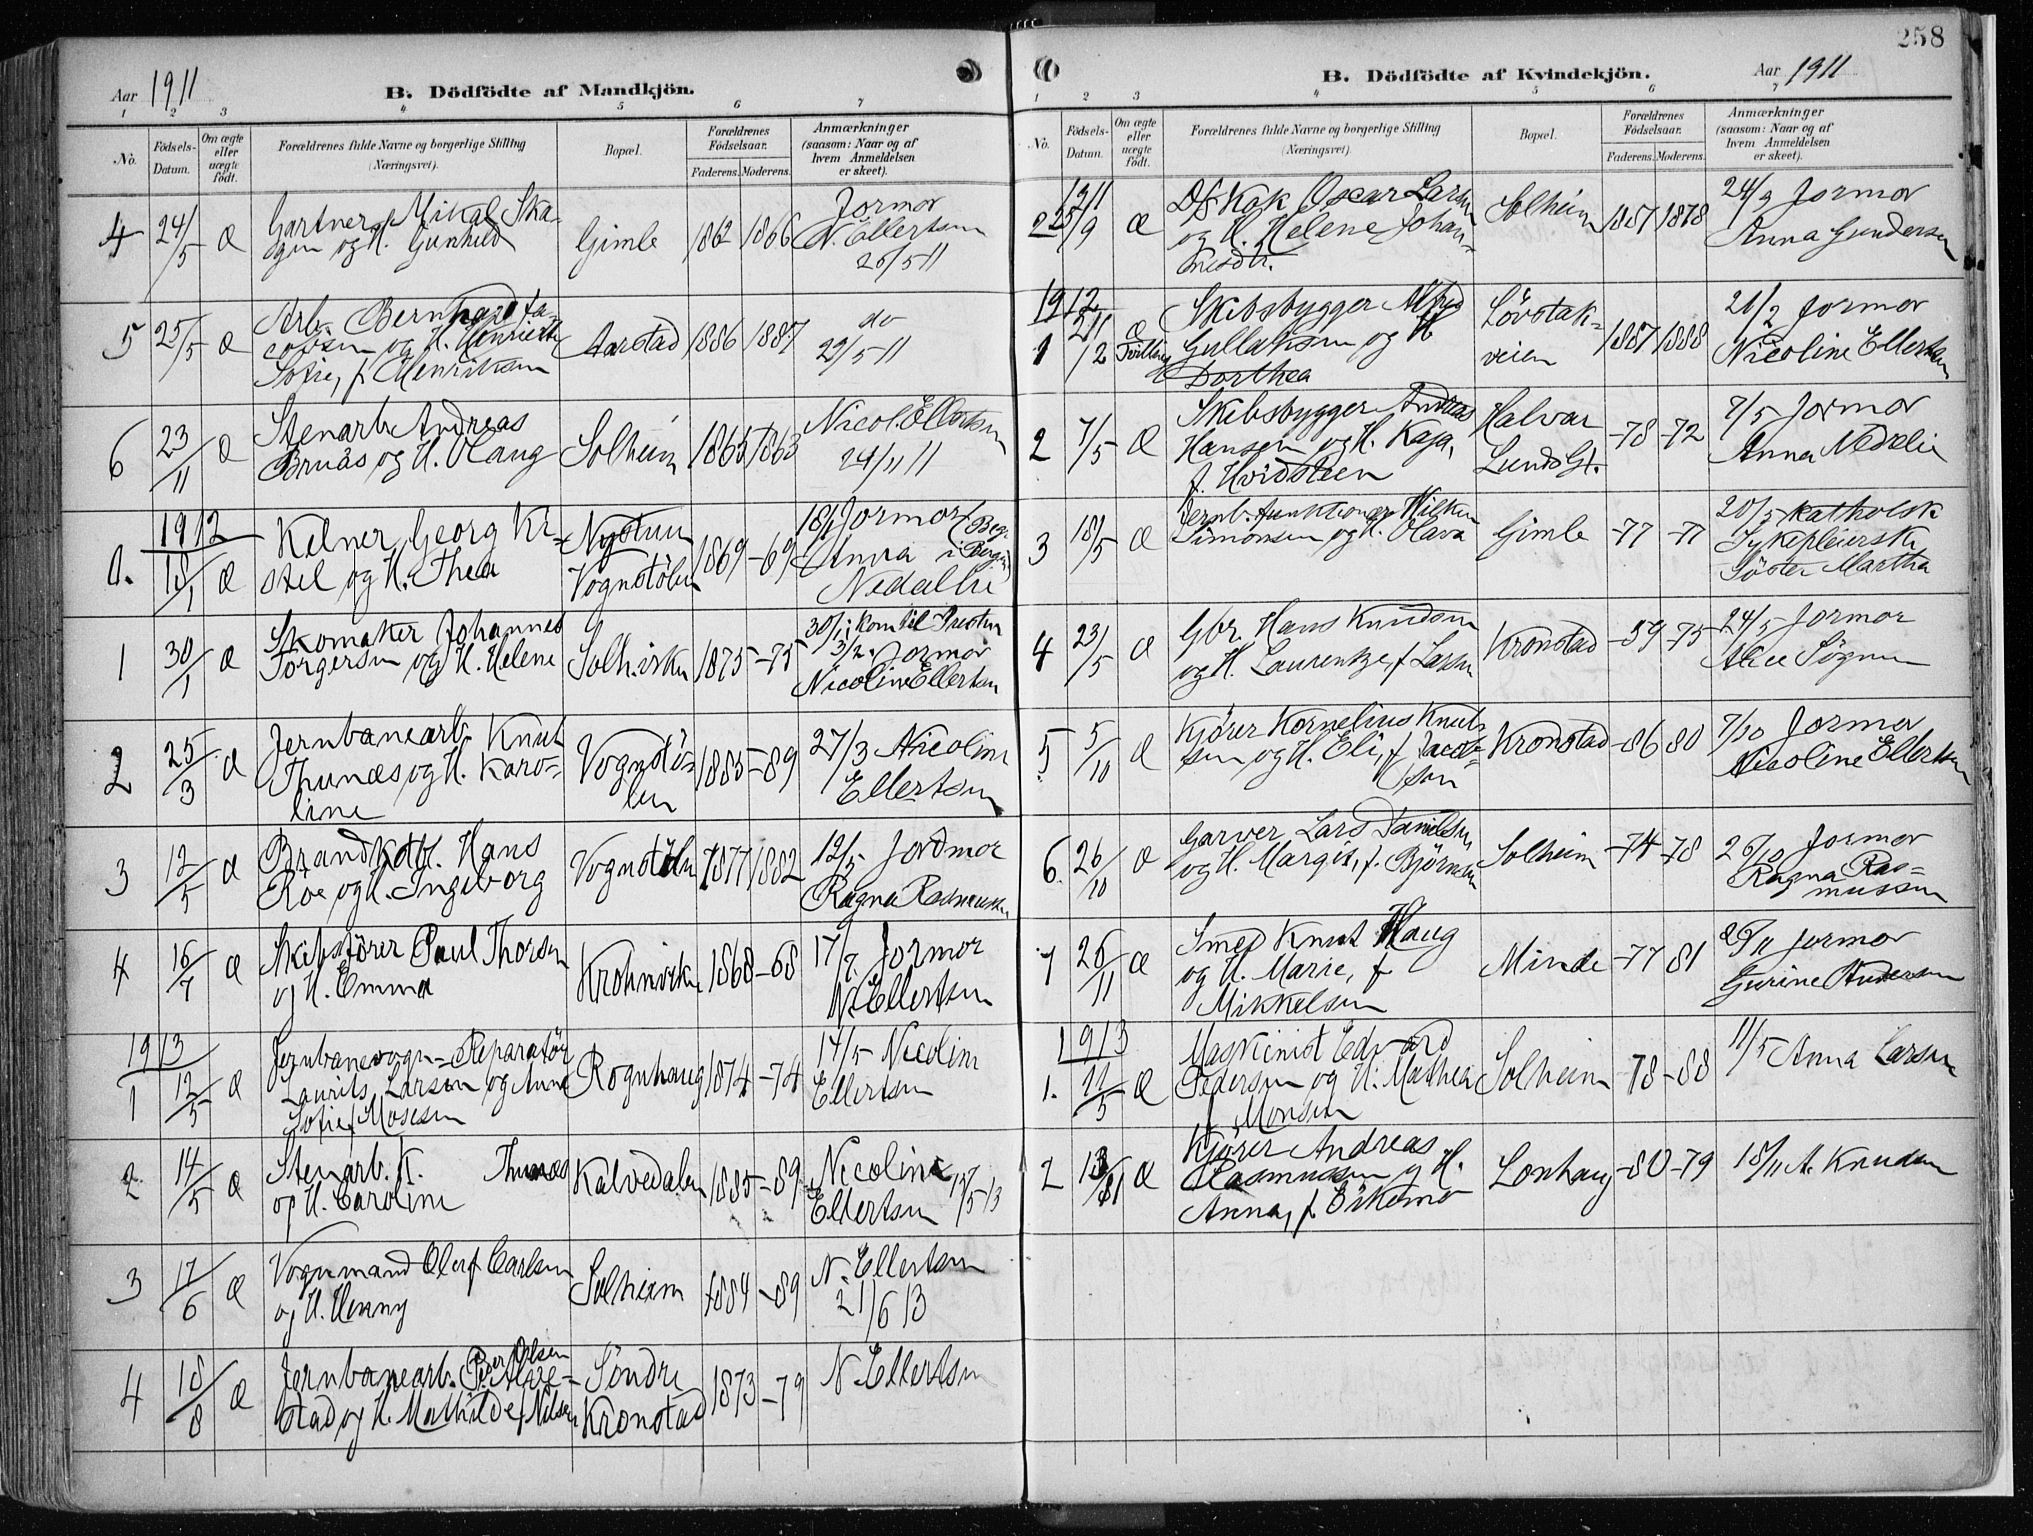 Aar 1911
B. Dödfödte af Mandkjön.
1 2 3 4 5 6 7
No.
Födsels-Datum.
Om ægte eller uægte födt.
Forældrenes fulde Navne og borgerlige Stilling (Næringsvei).
Bopæl.
Forældrenes Födselsaar.
Faderens. Moderens.
Anmærkninger (saasom: Naar og af hvem Anmeldelsen er skeet).
4 24/5 Æ Gartner Mikal Ska-
gen og H. Gunhild Gimle 1862 1866 Jormor
N. Ellertsen
26/5 11
5 25/5 Æ Arb. Bernhard Ja-
cobsen og H. Henriette
Sofie, f. Henriksen Aarstad 1886 1887 do
29/5 11
6 23/11 Æ Stenarb. Andreas
Bruås og H. Olaug Solheim 1865 1863 Nicol. Ellertsen
24/11 11
1912
18/1 Æ Kelner Georg Kri-
stel og H. Thea Nystuen
Vognstölen 1869 -69 18/1 Jormor (Begr.
Anna i Bergen)
Nedalli
1 30/1 Æ Skomaker Johannes
Torgersen og H. Helene Solh.virken 1875 -75 30/1; kom til Presten
3/2. Jormor
Nicoline Ellertsen
2 25/3 Æ Jernbanearb. Knut
Thunæs og H. Karo-
line Vognstö-
len 1885 -89 27/3 Nicoline
Ellertsen
3 12/5 Æ Brandkstbl. Hans
Röe og H. Ingeborg Vognstölen 1877 1882 12/5 Jordmor
Ragna Rasmussen
4 16/7 Æ Skibsförer Paul Thorsen
og H. Emma Krohnviken 1868 -68 17/7 Jormor
N. Ellertsen
1913
1 12/5 Æ Jernbanevogn-Reparatör
Laurits Larsen og Anne
Sofie f. Mosesen Rognhaug 1874 -74 14/5 Nicoline
Ellertsen
2 14/5 Æ Stenarb. K. Thunæs
og H. Caroline Kalvedalen 1885 -89 Nicoline
Ellertsen 17/5 13
3 17/6 Æ Vognmand Oluf Carlsen
og H. Henny Solheim 1884 -89 N. Ellertsen
21/6 13
4 18/8 Æ Jernbanearb. Peder Olsen
stad og H. Mathilde f. Nilsen Söndre
Kronstad 1873 -79 N. Ellertsen
258
B. Dödfödte af Kvindekjön.
Aar 1911
1 2 3 4 5 6 7
No.
Födsels-Datum.
Om ægte eller uægte födt.
Forældrenes fulde Navne og borgerlige Stilling (Næringsvei).
Bopæl.
Forældrenes Födselsaar.
Faderens. Moderens.
Anmærkninger (saasom: Naar og af hvem Anmeldelsen er skeet).
1911
2 25/9 Æ Ds.Kok Oscar Larsen
og H. Helene Johan-
nesdtr. Solheim 1887 1878 24/9 Jormor
Anna Gundersen
1912
1 21/2 Æ Tvilling Skibsbygger Alfred
Gullaksen og H
Dorthea Lövstak-
veien 1887 1888 21/2 Jormor
Nicoline Ellertsen
2 7/5 Æ Skibsbygger Andreas
Hansen og H. Kaja,
f. Hvidsteen Halvar
Lundsgt. -78 -72 7/5 Jormor
Anna Nedalie
3 18/5 Æ Jernb.funktionær Wilhem
Simonsen og H. Olava Gimle -77 -77 20/5 Katholsk
Sykepleierske
Söster Martha
4 23/5 Æ Gbr. Hans Knudsen
og H. Laurentze, f. Larsen Kronstad -59 -75 24/5 Jormor
Alice Sögnen
5 5/10 Æ Kjörer Kornelius Knut-
sen og H. Eli, f. Jacob-
sen Kronstad -86 80 7/10 Jormor
Nicoline Ellertsen
6 26/10 Æ Garver Lars Danielsen
og H. Margit, f. Björnsen Solheim -74 -78 26/10 Jormor
Ragna Ras-
mussen
7 26/11 Æ Smed Knut Haug
og H. Marie, f.
Mikkelsen Minde -77 81 26/11 Jormor
Gurine Andersen
1913
1. 11/5 Æ Maskinist Edvard
Pedersen og H. Mathea
f. Monsen Solheim 78 -88 11/5 Anna Larsen
2 13/11 Æ Kjörer Andreas
Rasmussen og H.
Anna, f. Eikemo Lonhaug -80 -79 18/11 A. Knudsen